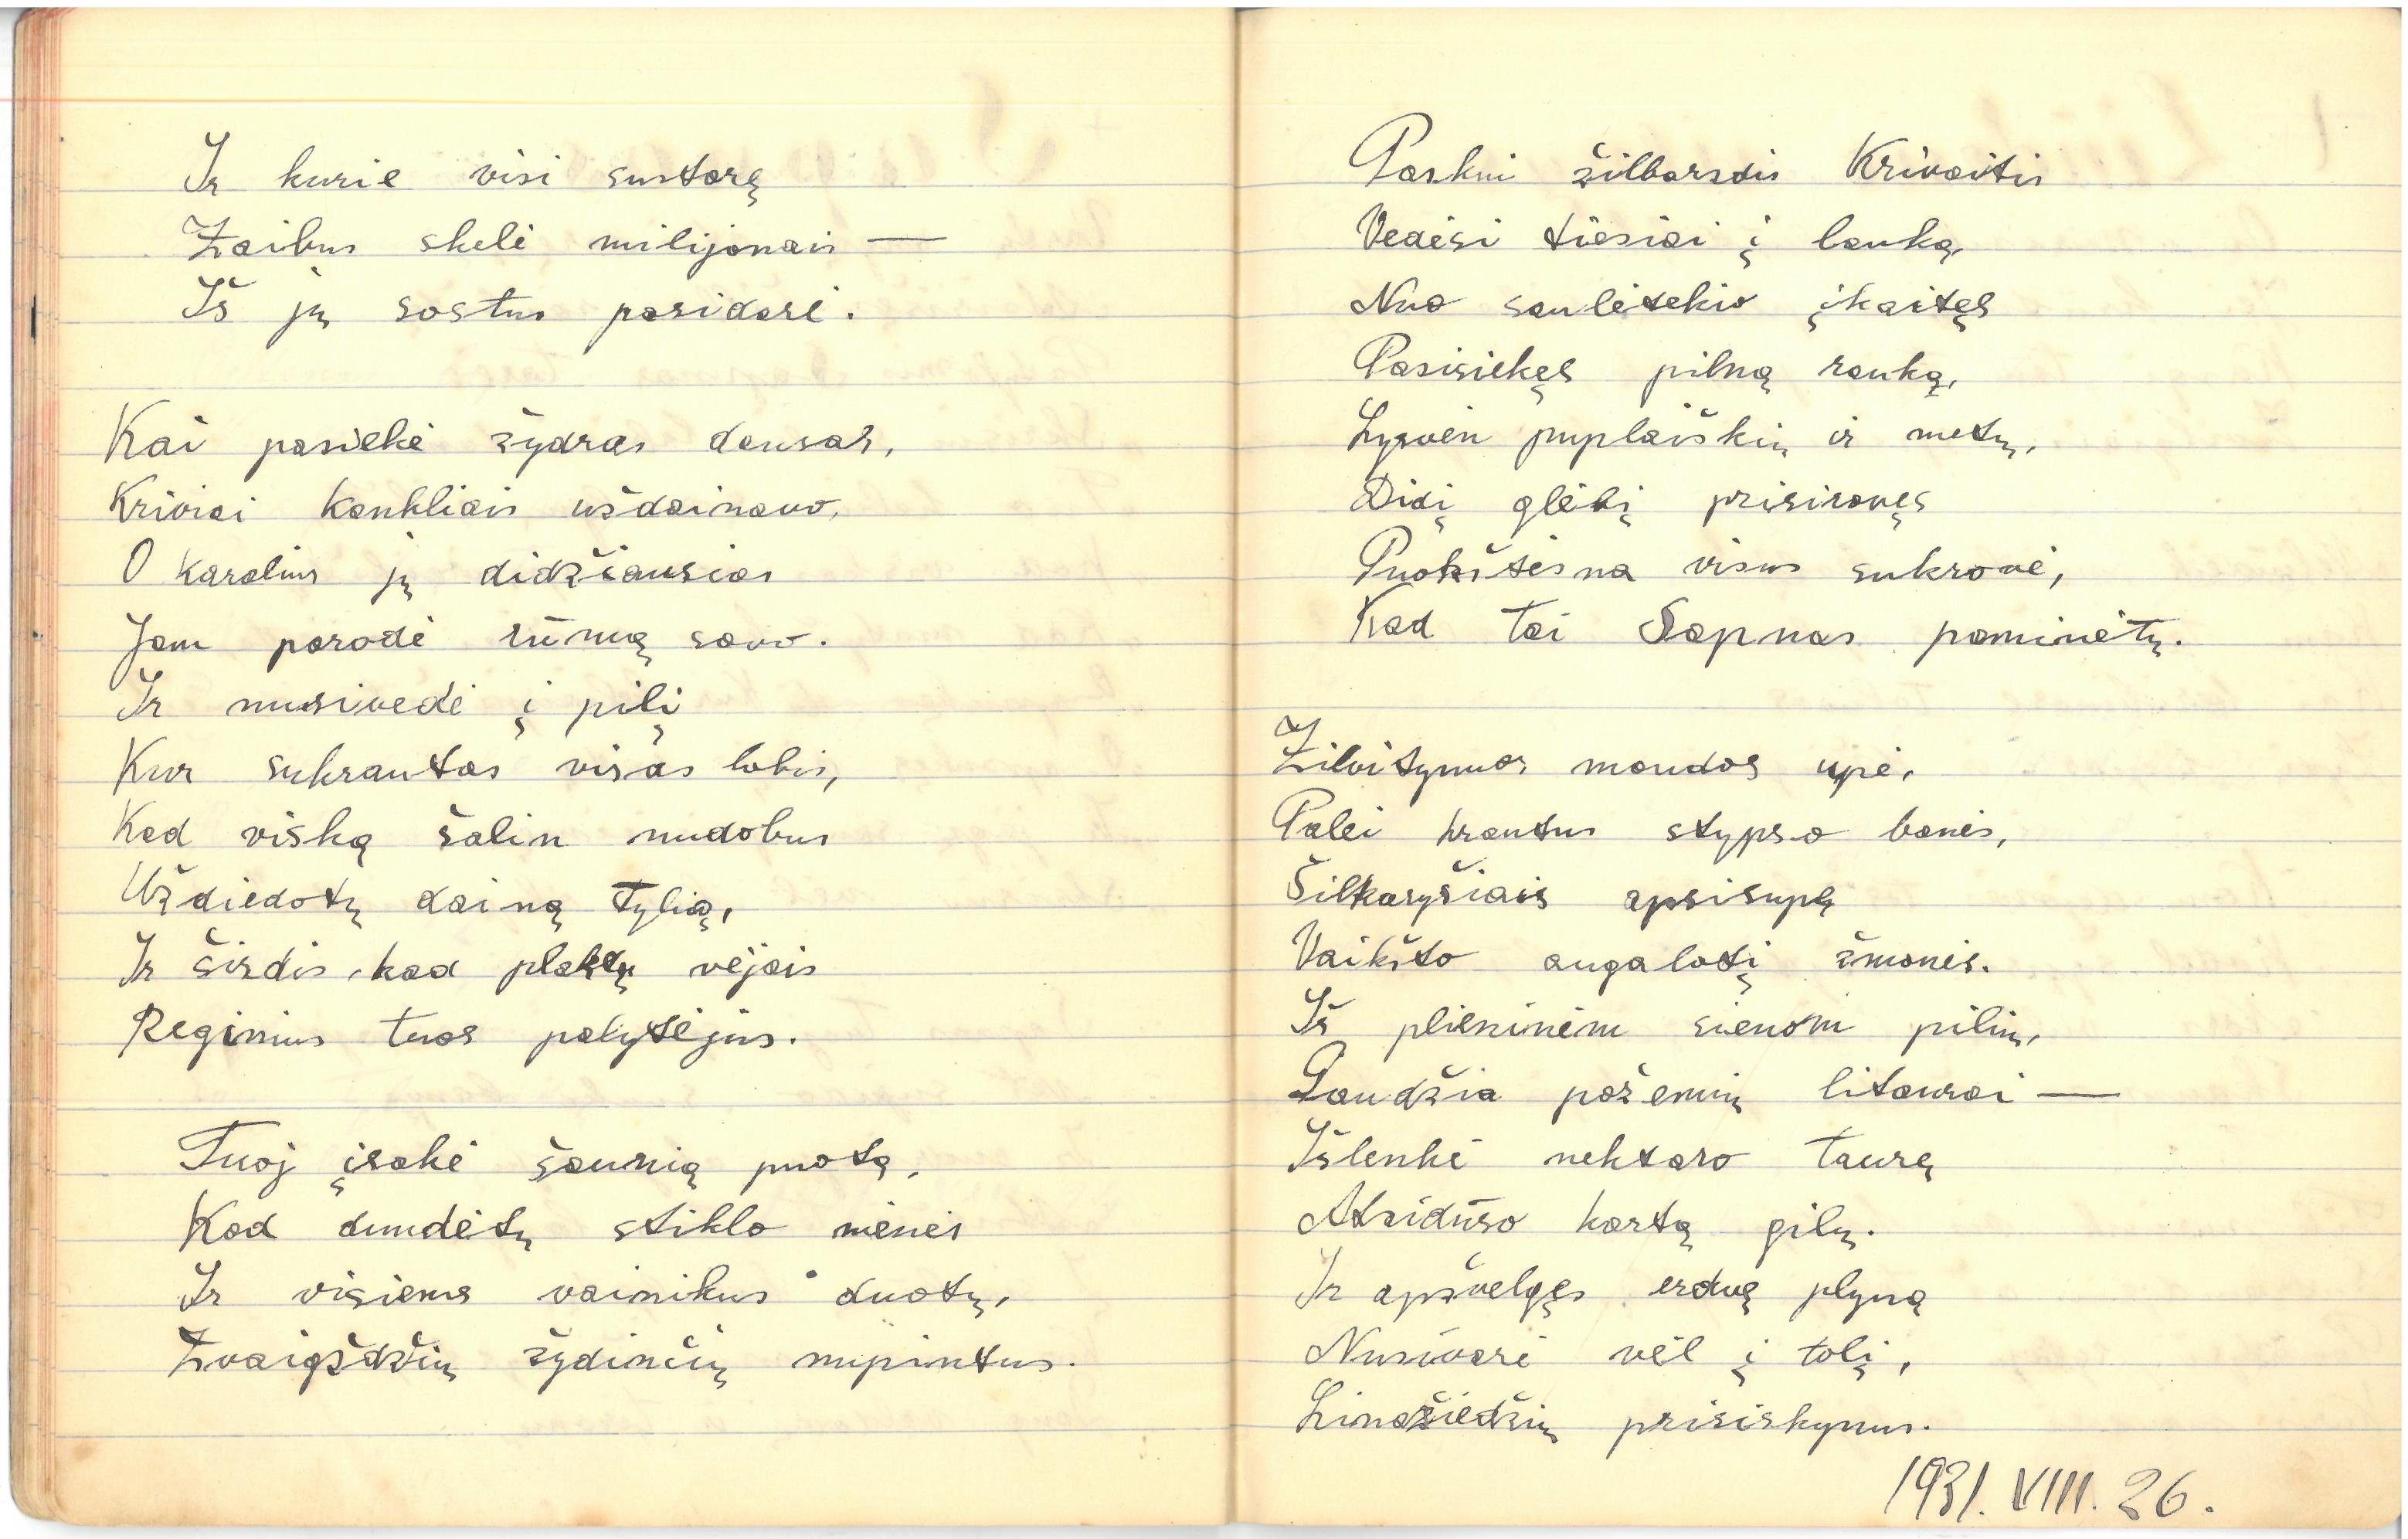 Ir kurie visi sustorę
Žaibus skėlė milijonais —
Iš jų sostus pasidarė.
Kai pasiekė žydras dausas,
Kriviai kankliais uždainavo,
O karalius jų didžiausias
Jam parodė rūmą savo.
Ir nusivedė į pilį
Kur sukrautas visas lobis,
Kad viską šalin nudobus
Uždiedotų dainą tylią,
Ir širdis, kad plaktų vėjais
Reginius tuos palytėjus.
Tuoj įsakė šaunią puotą,
Kad dundėtų stiklo menės
Ir visiems vainikus duotų,
Žvaigždžių žydinčių nupintus.
Paskui žilbarzdis Krivaitis
Vedėsi tiesiai į lauką,
Nuo saulėtekio įkaitęs
Pasisiekęs pilną ranką,
Lysvėn puplaiškių ir metų,
Didį glėbį prisirovęs
Puokštėsna visus sukrovė,
Kad tai Sapnas paminėtų.
Žilvitynuos maudos upė,
Palei krantus stypso bonės,
Šilkaryšiais apsisupę
Vaikšto augaloti žmonės.
Iš plieninėm sienom pilių,
Gaudžia požemių litaurai —
Išlenkė nektaro taurę
Atsidūso kartą gilų.
Ir apžvelgęs erdvę plyną
Nusivarė vėl į tolį,
Linažiedžių prisiskynus.
1931. VIII. 26.